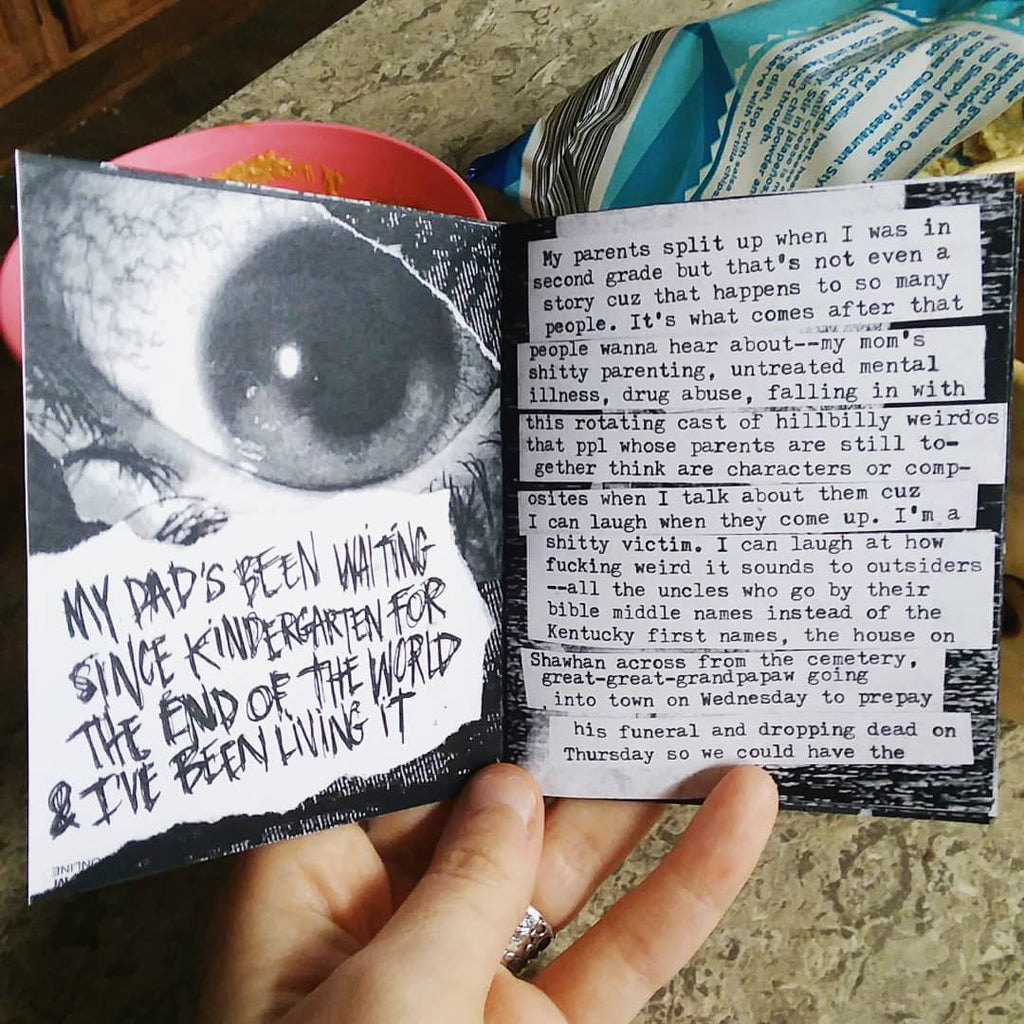 MY DAD'S BEEN WAITING
SINCE KINDERGARTEN FOR
THE END OF THE WORLD
& I'VE BEEN LIVING IT
ONLINE
My parents split up when I was in
second grade but that's not even a
story cuz that happens to so many
people. It's what comes after that
people wanna hear about--my mom's
shitty parenting, untreated mental
illness, drug abuse, falling in with
this rotating cast of hillbilly weirdos
that ppl whose parents are still to-
gether think are characters or comp-
osites when I talk about them cuz
I can laugh when they come up. I'm a
shitty victim. I can laugh at how
fucking weird it sounds to outsiders
--all the uncles who go by their
bible middle names instead of the
Kentucky first names, the house on
Shawhan across from the cemetery,
great-great-grandpapaw going
into town on Wednesday to prepay
his funeral and dropping dead on
Thursday so we could have the